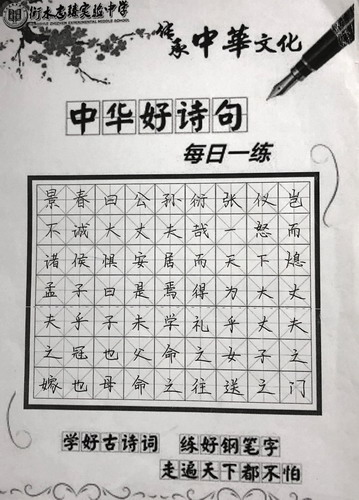 衡水志臻实验中学
传承中華文化
中华好诗句
每日一练
景春曰公孙衍张仪岂
不诚大丈夫哉一怒而
诸侯惧安居而天下熄
孟子曰是焉得为大丈
夫乎子未学礼乎丈夫
之冠也父命之女子之
嫁也母命之往送之门
学好古诗词 练好钢笔字
走遍天下都不怕